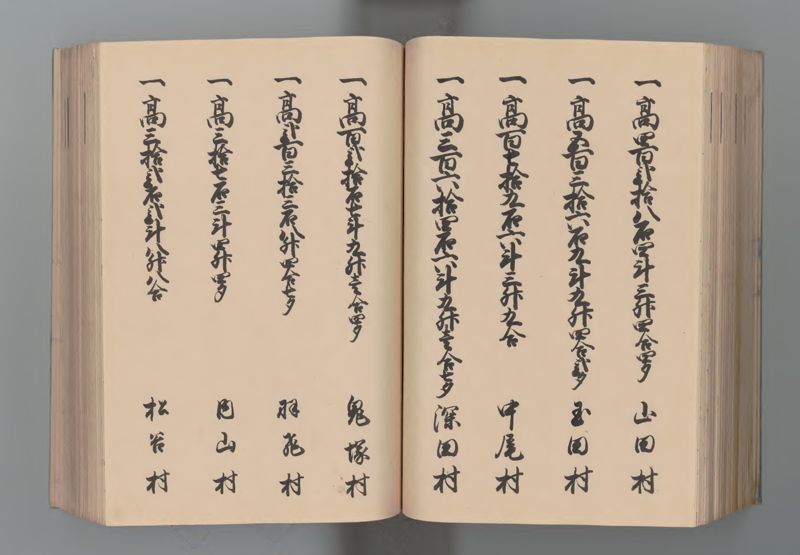 一高四百弐拾八石四斗三升四合四夕 山田村
一高五百三拾六石九斗九升四合弐夕 玉田村
一高百七拾九石六斗三升九合 中尾村
一高三百六拾四石六斗九升壱合七夕 深田村
一高百弐拾石七斗九升壱合四夕 鬼塚村
一高弐百三拾三石八升四合七夕 村
一高三拾七石三斗四升四夕 円山村
一高三拾弐石弐斗八升八合 松谷村